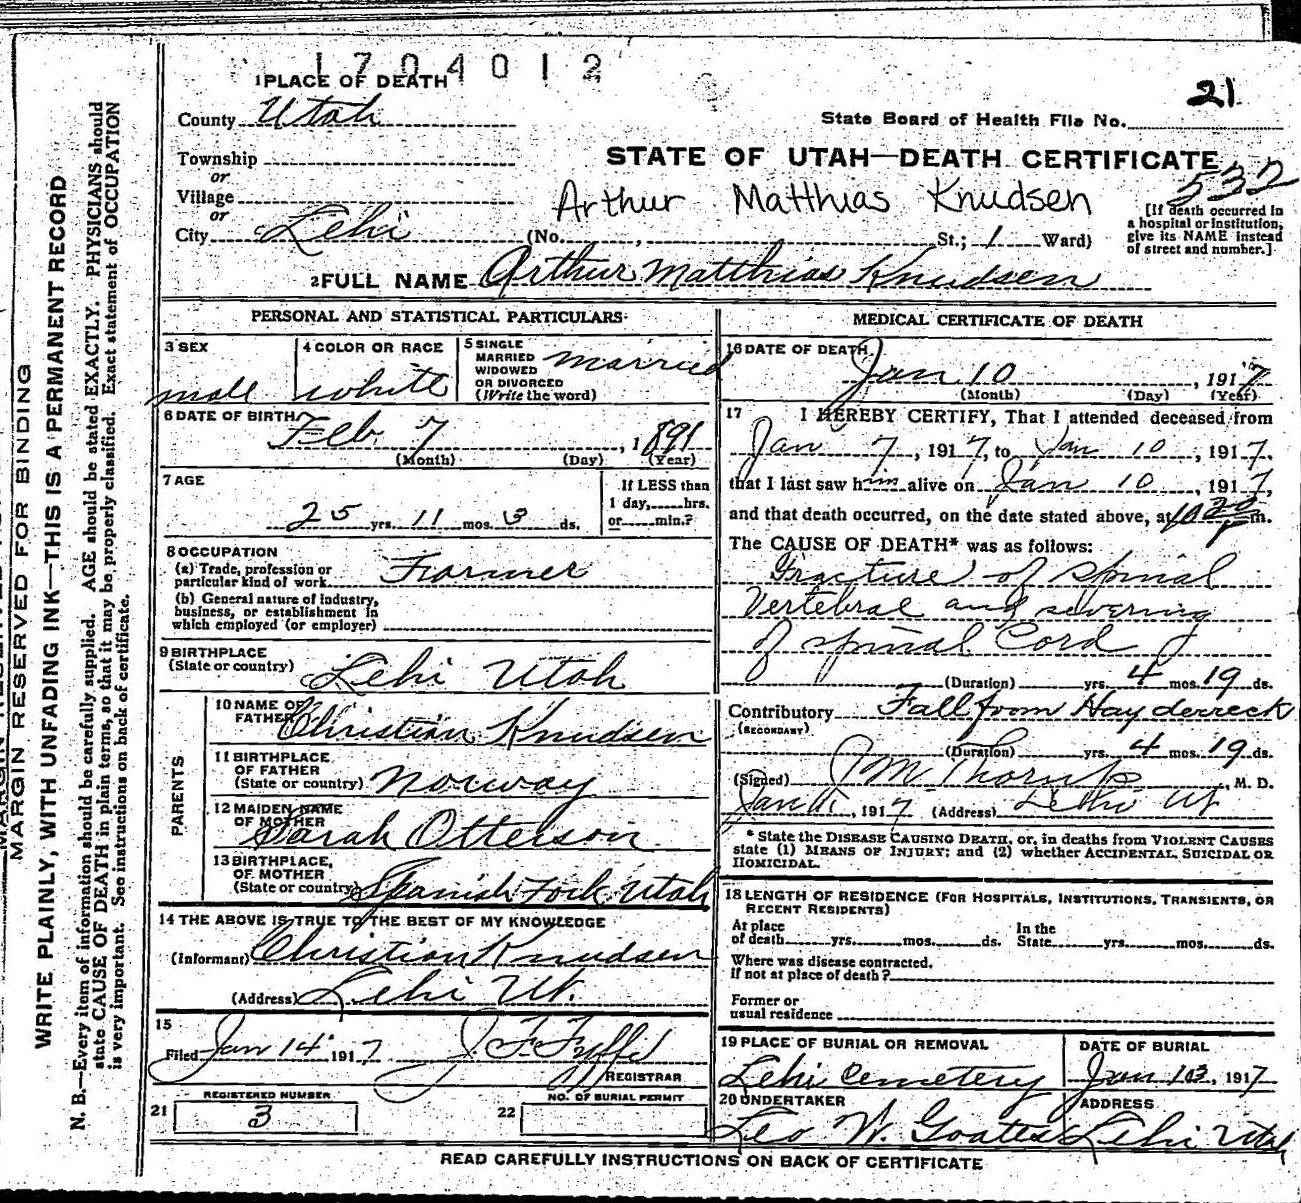 1704012
1 PLACE OF DEATH
County Utah
Township
or
Village
or
City Lehi
21
State Board of Health File No.
STATE OF UTAH—DEATH CERTIFICATE
532
Arthur Matthias Knudsen
[If death occurred in
a hospital or institution,
give its NAME instead
of street and number.]
(No. , St.; 1 Ward)
2 FULL NAME Arthur Matthias Knudsen
PERSONAL AND STATISTICAL PARTICULARS
3 SEX
male
4 COLOR OR RACE
white
5 SINGLE
MARRIED
WIDOWED
OR DIVORCED
(Write the word)
married
6 DATE OF BIRTH
Feb. 7, 1891
(Month) (Day) (Year)
7 AGE
25 yrs. 11 mos. 3 ds.
If LESS than
1 day, hrs.
or min.?
8 OCCUPATION
(a) Trade, profession or
particular kind of work Farmer
(b) General nature of industry,
business, or establishment in
which employed (or employer)
9 BIRTHPLACE
(State or country) Lehi Utah
PARENTS
10 NAME OF
FATHER Christian Knudsen
11 BIRTHPLACE
OF FATHER
(State or country) Norway
12 MAIDEN NAME
OF MOTHER Sarah Otterson
13 BIRTHPLACE,
OF MOTHER
(State or country) Spanish Fork Utah
14 THE ABOVE IS TRUE TO THE BEST OF MY KNOWLEDGE
(Informant) Christian Knudsen
(Address) Lehi Ut.
15
Filed Jan 14 1917 J. F. Fyffe
REGISTRAR
REGISTERED NUMBER
21 3
NO. OF BURIAL PERMIT
22
MEDICAL CERTIFICATE OF DEATH
16 DATE OF DEATH
Jan 10, 1917
(Month) (Day) (Year)
17 I HEREBY CERTIFY, That I attended deceased from
Jan 7, 1917, to Jan 10, 1917,
that I last saw him alive on Jan 10, 1917,
and that death occurred, on the date stated above, at m.
The CAUSE OF DEATH* was as follows:
Fracture of spinal
Vertebral and severing
of spinal Cord
(Duration) yrs. 4 mos. 19 ds.
Contributory Fall from Hay derreck
(SECONDARY)
(Duration) yrs. 4 mos. 19 ds.
(Signed) Thorup, M. D.
Jan 11, 1917 (Address) Lehi Ut
* State the DISEASE CAUSING DEATH, or, in deaths from VIOLENT CAUSES
state (1) MEANS OF INJURY; and (2) whether ACCIDENTAL, SUICIDAL OR
HOMICIDAL.
18 LENGTH OF RESIDENCE (FOR HOSPITALS, INSTITUTIONS, TRANSIENTS, OR
RECENT RESIDENTS)
At place
of death yrs. mos. ds.
In the
State yrs. mos. ds.
Where was disease contracted,
if not at place of death?
Former or
usual residence
19 PLACE OF BURIAL OR REMOVAL
Lehi Cemetery
DATE OF BURIAL
Jan 13, 1917
20 UNDERTAKER
Leo W. Goates
ADDRESS
Lehi Utah
READ CAREFULLY INSTRUCTIONS ON BACK OF CERTIFICATE
MARGIN RESERVED FOR BINDING
WRITE PLAINLY, WITH UNFADING INK—THIS IS A PERMANENT RECORD
N. B.—Every item of information should be carefully supplied. AGE should be stated EXACTLY. PHYSICIANS should
state CAUSE OF DEATH in plain terms, so that it may be properly classified. Exact statement of OCCUPATION
is very important. See instructions on back of certificate.